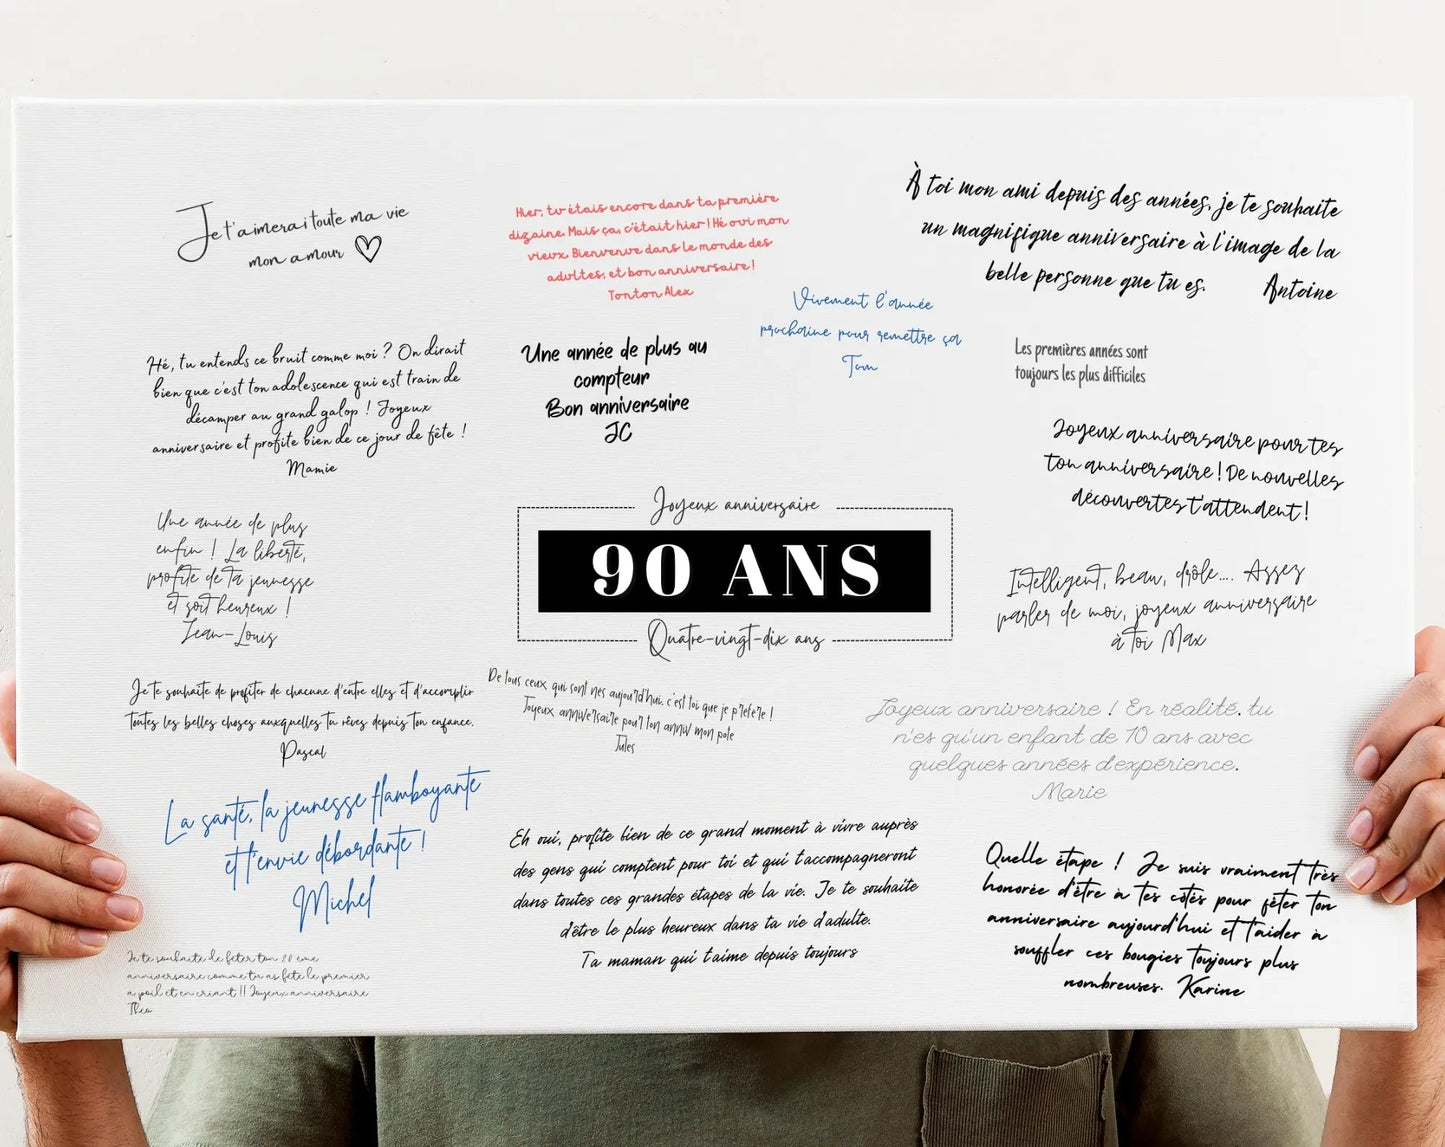 Je t'aimerai toute ma vie
mon amour
Hier, tu étais encore dans ta première
dizaine. Mais ça, c'était hier ! Hé oui mon
vieux. Bienvenue dans le monde des
adultes, et bon anniversaire !
Tonton Alex
À toi mon ami depuis des années, je te souhaite
un magnifique anniversaire à l'image de la
belle personne que tu es. Antoine
Vivement l'année
prochaine pour remettre ça
Tom
Hé, tu entends ce bruit comme moi ? On dirait
bien que c'est ton adolescence qui est train de
décamper au grand galop ! Joyeux
anniversaire et profite bien de ce jour de fête !
Mamie
Une année de plus au
compteur
Bon anniversaire
JC
Les premières années sont
toujours les plus difficiles
Joyeux anniversaire pour tes
ton anniversaire ! De nouvelles
découvertes t'attendent !
Une année de plus
enfin ! La liberté,
profite de ta jeunesse
et soit heureux !
Jean-Louis
Joyeux anniversaire
90 ANS
Quatre-vingt-dix ans
Intelligent, beau, drôle.... Assez
parler de moi, joyeux anniversaire
à toi Max
Je te souhaite de profiter de chacune d'entre elles et d'accomplir
toutes les belles choses auxquelles tu rêves depuis ton enfance.
Pascal
De tous ceux qui sont nés aujourd'hui, c'est toi que je préfère !
Joyeux anniversaire pour ton anniv mon pote
Jules
Joyeux anniversaire ! En réalité, tu
n'es qu'un enfant de 10 ans avec
quelques années d'expérience.
Marie
La santé, la jeunesse flamboyante
et l'envie débordante !
Michel
Eh oui, profite bien de ce grand moment à vivre auprès
des gens qui comptent pour toi et qui t'accompagneront
dans toutes ces grandes étapes de la vie. Je te souhaite
d'être le plus heureux dans ta vie d'adulte.
Ta maman qui t'aime depuis toujours
Quelle étape ! Je suis vraiment très
honorée d'être à tes côtés pour fêter ton
anniversaire aujourd'hui et t'aider à
souffler ces bougies toujours plus
nombreuses. Karine
Je te souhaite de fêter ton 20 ème
anniversaire comme tu as fêté le premier
a poil et en criant !! Joyeux anniversaire
Théo